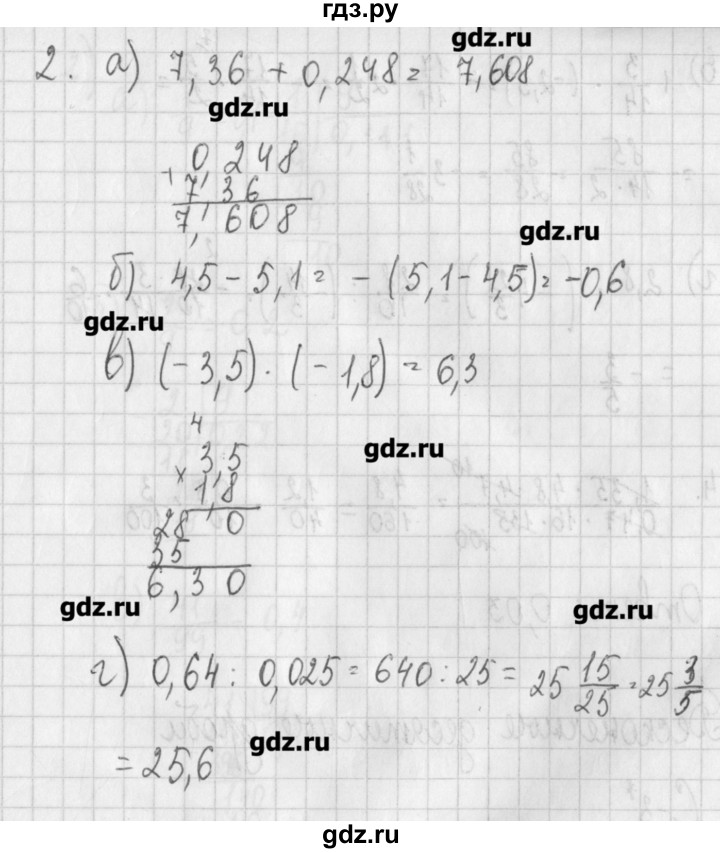 гдз.ру
gdz.ru
2. а) 7,36 + 0,248 = 7,608
gdz.ru
0,248
+ 7,36
7,608
gdz.ru
б) 4,5 - 5,1 = - (5,1 - 4,5) = -0,6
gdz.ru
в) (-3,5) · (-1,8) = 6,3
4
gdz.ru
3,5
× 1,8
28 0
35
6,30
gdz.ru
gdz.ru
г) 0,64 : 0,025 = 640 : 25 = 25 15/25 = 25 3/5
gdz.ru
= 25,6
gdz.ru